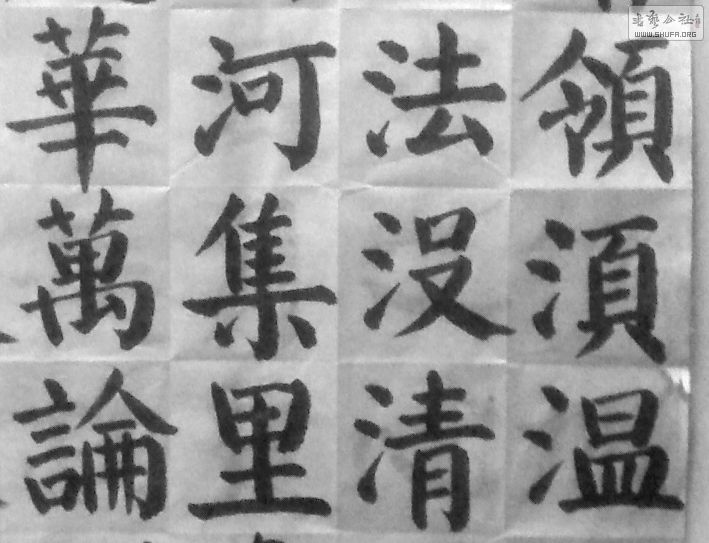 領湏温
法没清
河集里
華萬論
書藝公社
WWW.SHUFA.ORG